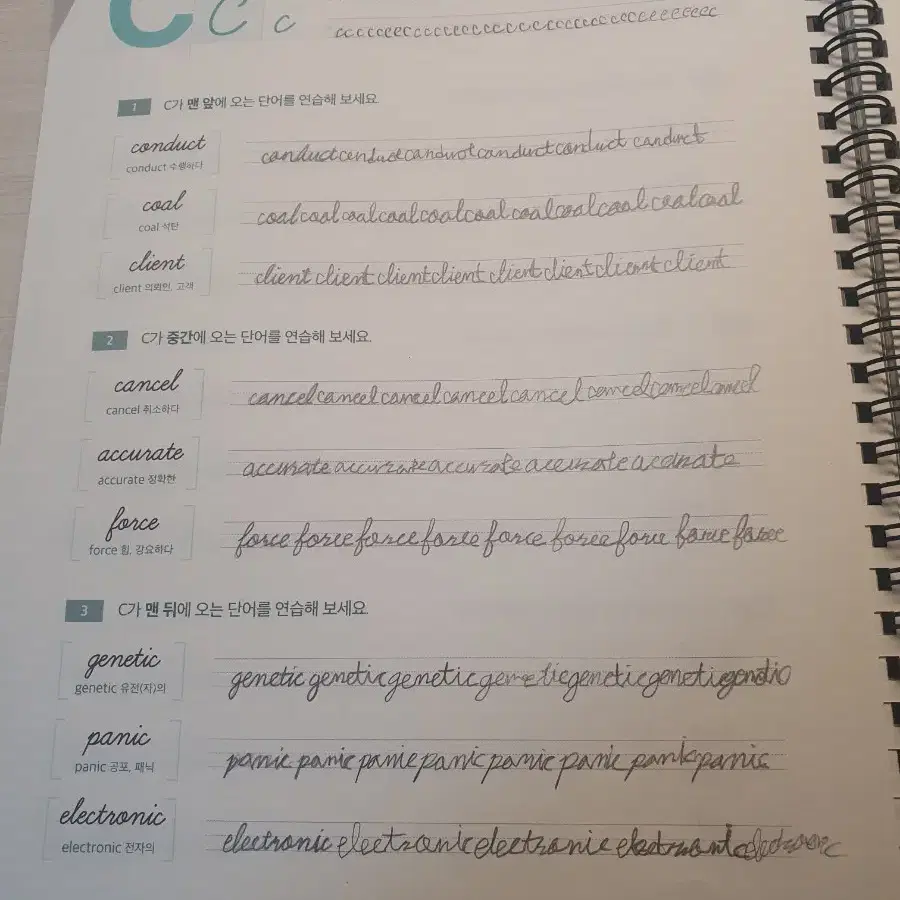 C C c
ccccceeccccceecccccccccccccccceeeeeec
1 C가 맨 앞에 오는 단어를 연습해 보세요.
conduct conductconductconductconductconduct conduct
conduct 수행하다
coal coalcoalcoalcoalcoalcoalcoalcoalcoalcoalcoal
coal 석탄
client client client clientclient client client client client
client 의뢰인, 고객
2 C가 중간에 오는 단어를 연습해 보세요.
cancel cancelcancelcancelcancelcancel cancelcancelcancel
cancel 취소하다
accurate accurate accurate accurate accurate accurate
accurate 정확한
force force force force force force force force force force
force 힘, 강요하다
3 C가 맨 뒤에 오는 단어를 연습해 보세요.
genetic genetic genetic genetic genetic genetic genetic genetic
genetic 유전(자)의
panic panic panic panic panic panic panic panic panic
panic 공포, 패닉
electronic electronic electronic electronic electronic electronic
electronic 전자의